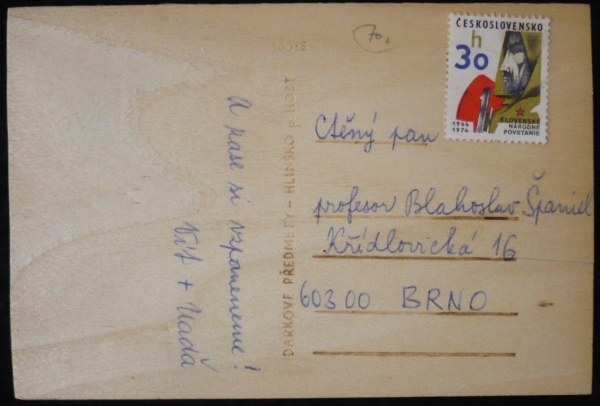 70,-
ČESKOSLOVENSKO
h
30
1944
1974
SLOVENSKÉ
NÁRODNÉ
POVSTANIE
A zase si vzpomeneme!
Vít + Naďa
DÁRKOVÉ PŘEDMĚTY - HLINSKO
Ctěný pan
profesor Blahoslav Španiel
Křídlovická 16
603 00 BRNO